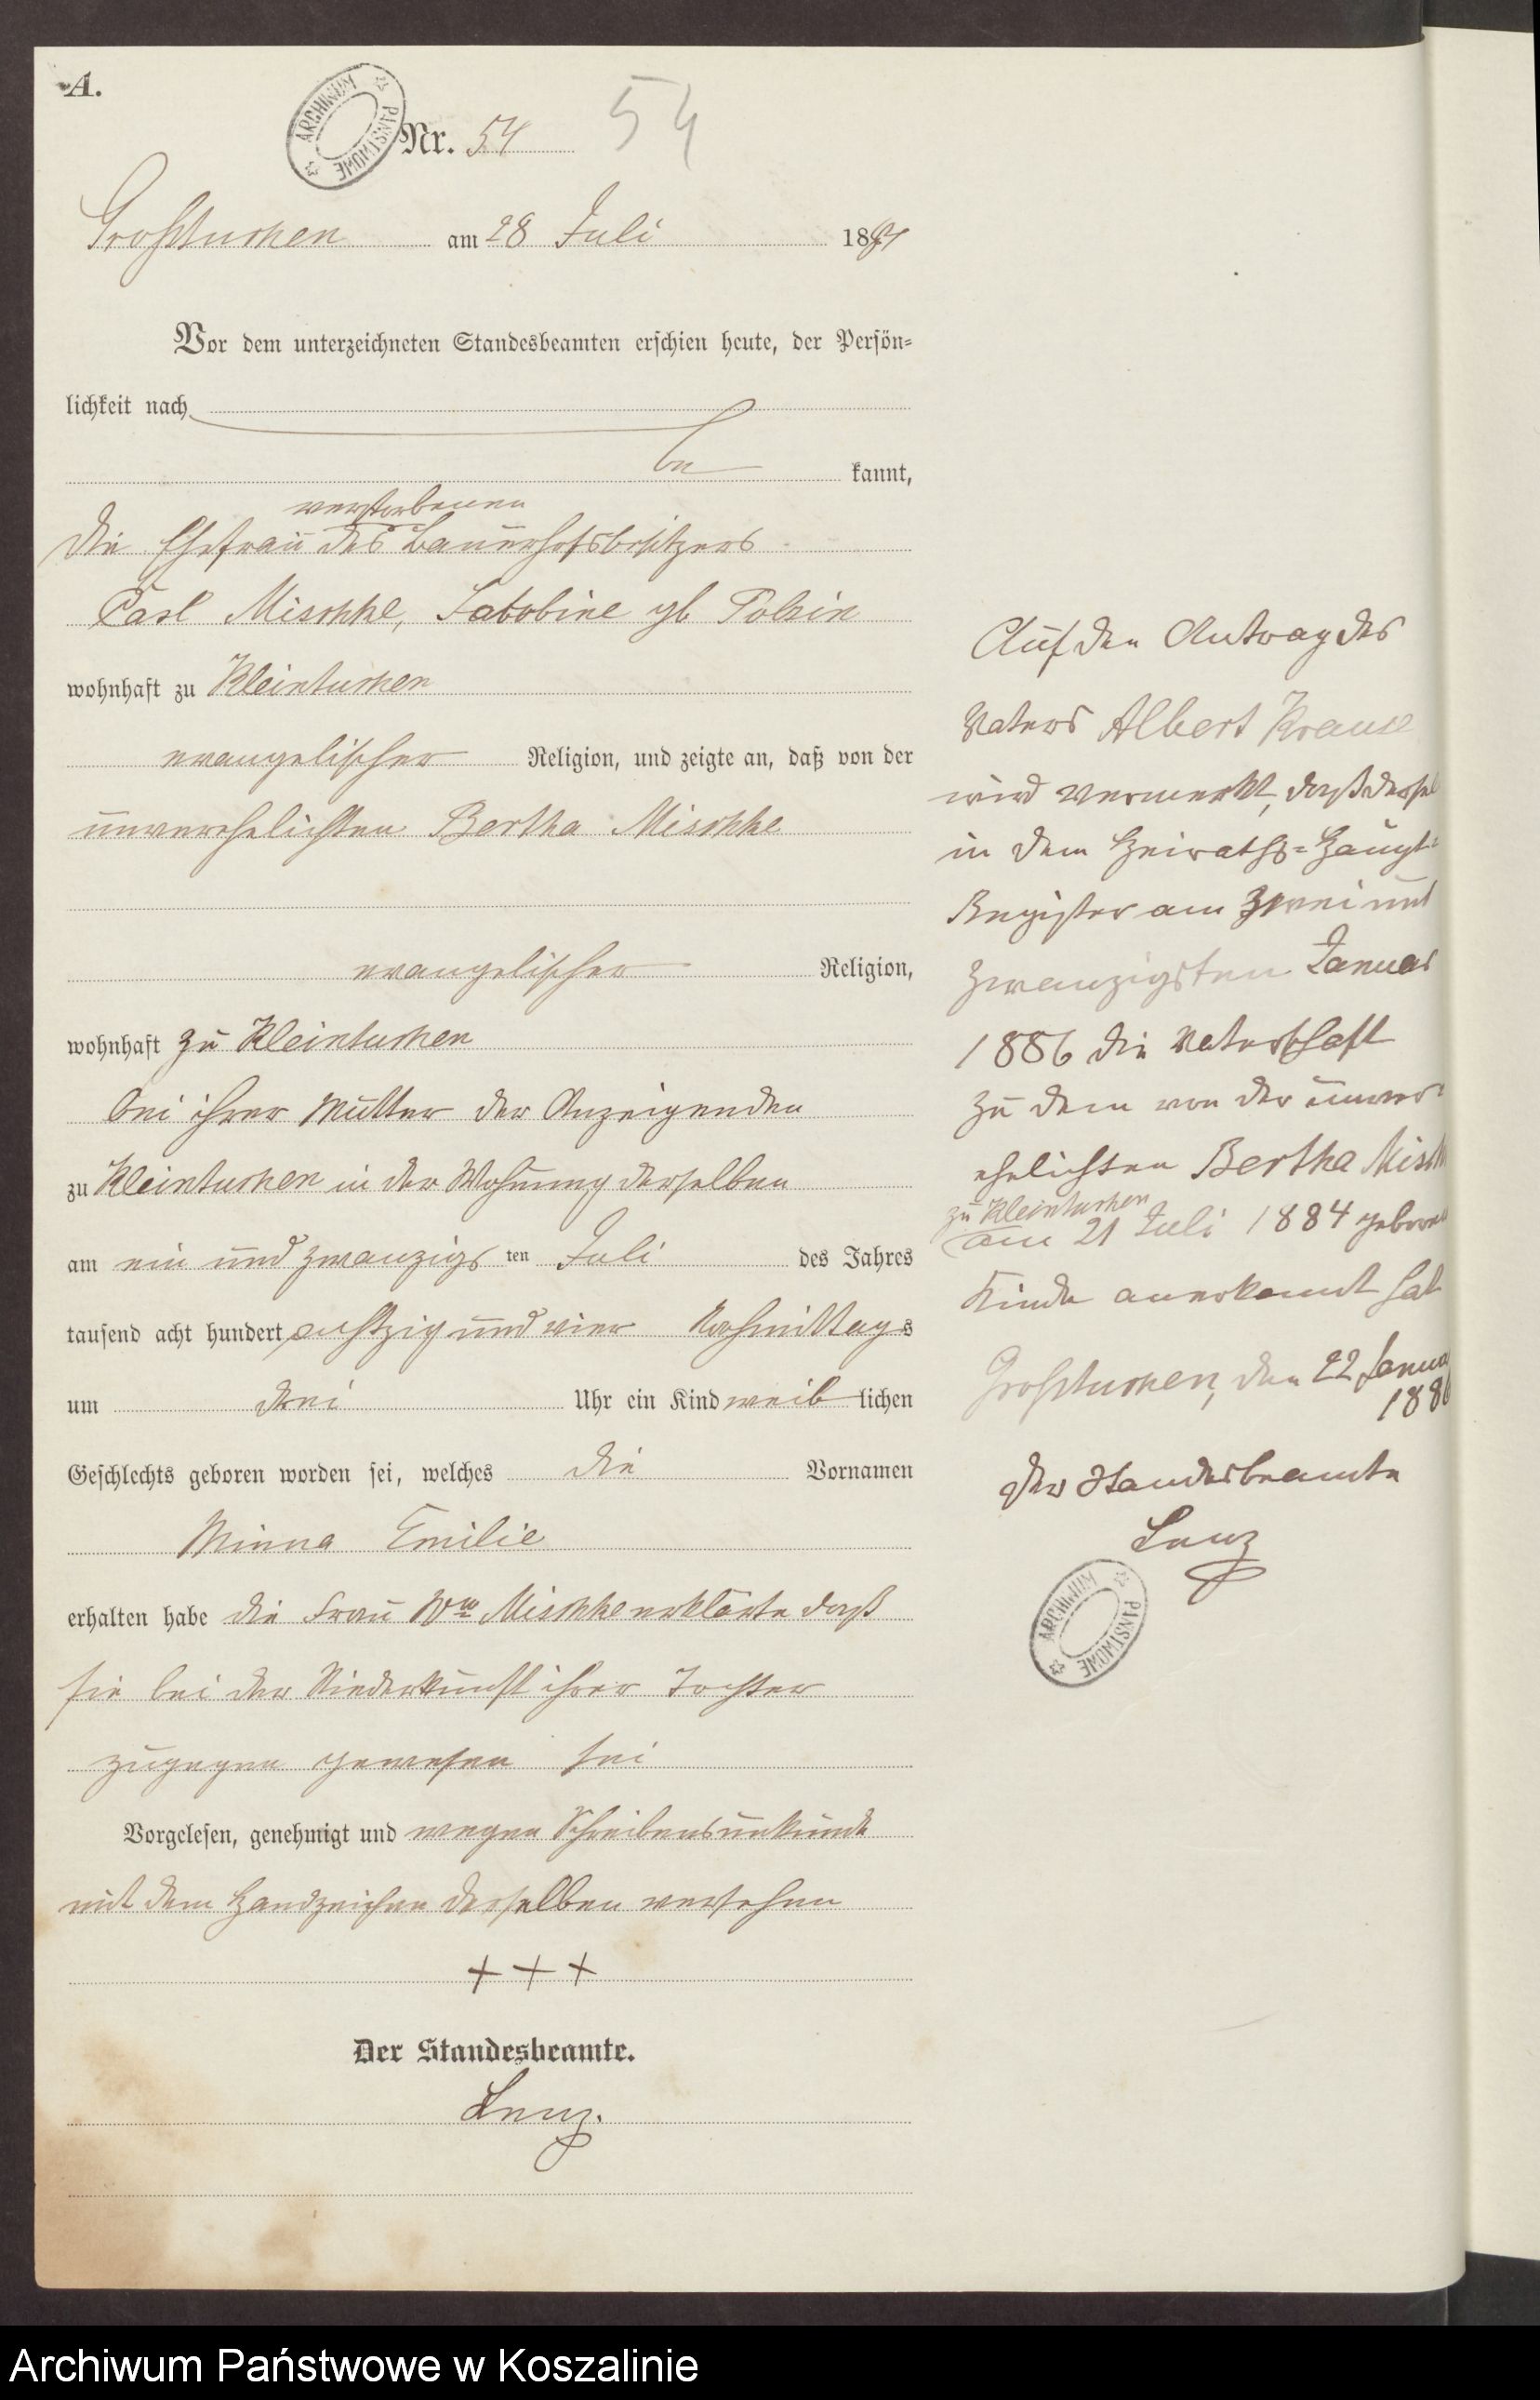 A.
ARCHIWUM PAŃSTWOWE
Nr. 54 54
Großtuchen am 28 Juli 1884
Vor dem unterzeichneten Standesbeamten erschien heute, der Persön-
lichkeit nach
be kannt,
verstorbenen
die Ehefrau des Bauernhofsbesitzers
Carl Mischke,
wohnhaft zu Kleintuchen
evangelischer Religion, und zeigte an, daß von der
unverehelichten Bertha Mischke
evangelischer Religion,
wohnhaft zu Kleintuchen
bei ihrer Mutter der Anzeigenden
zu Kleintuchen in der Wohnung derselben
am ein und zwanzigs ten Juli des Jahres
tausend acht hundert achtzig und vier Nachmittags
um drei Uhr ein Kind weib lichen
Geschlechts geboren worden sei, welches die Vornamen
Minna Emilie
erhalten habe die Frau Ww Mischke erklärte daß
sie bei der Niederkunft ihrer Tochter
zugegen gewesen sei
Vorgelesen, genehmigt und wegen Schreibensunkunde
mit dem Handzeichen derselben versehen
+ + +
Der Standesbeamte.
Lenz.
Auf den Antrag des
Vaters Albert Krause
wird vermerkt, daß dersel
in dem Heiraths-Haupt-
Register am zwei und
zwanzigsten Januar
1886 die Vaterschaft
zu dem von der unver-
ehelichten Bertha Misch
zu Kleintuchen
am 21 Juli 1884 geboren
Kinde anerkannt hat
Großtuchen, den 22 Janua
1886
Der Standesbeamte
Lenz
ARCHIWUM PAŃSTWOWE
Archiwum Państwowe w Koszalinie